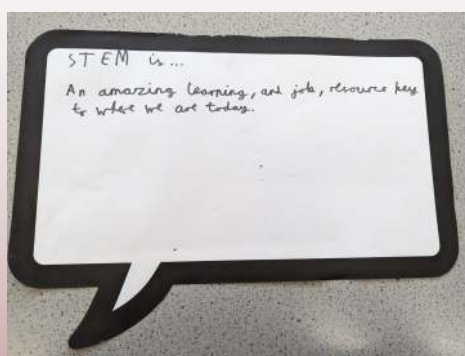 STEM is...
An amazing learning, and job, resource key
to where we are today.